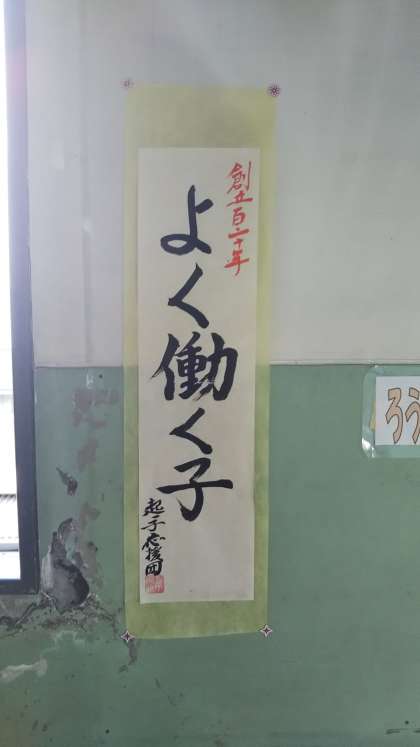 創立百二十年
よく働く子
起子応援団
ろう